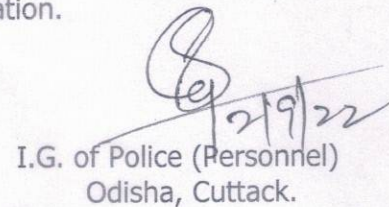 ation.
2/9/22
I.G. of Police (Personnel)
Odisha, Cuttack.